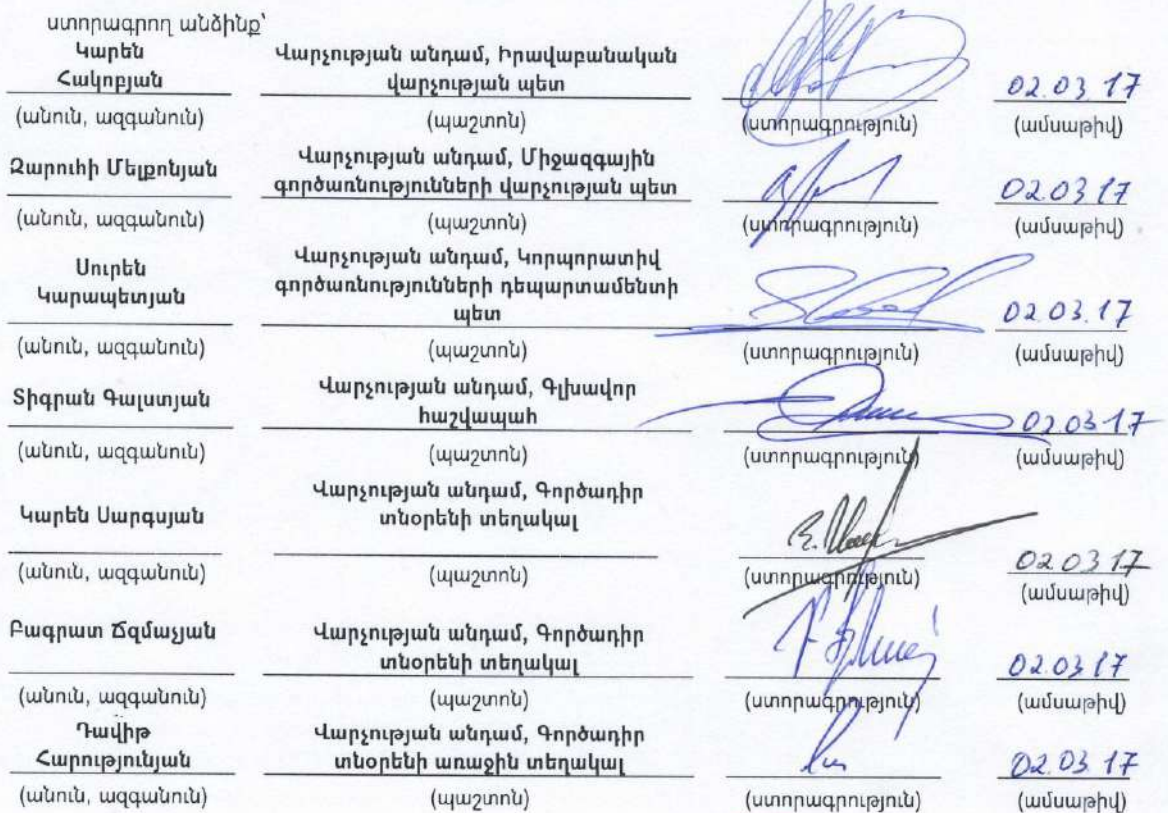 ստորագրող անձինք՝
Կարեն
Հակոբյան
Վարչության անդամ, Իրավաբանական
վարչության պետ
02.03.17
(անուն, ազգանուն) (պաշտոն) (ստորագրություն) (ամսաթիվ)
Զարուհի Մելքոնյան
Վարչության անդամ, Միջազգային
գործառնությունների վարչության պետ
02.03.17
(անուն, ազգանուն) (պաշտոն) (ստորագրություն) (ամսաթիվ)
Սուրեն
Կարապետյան
Վարչության անդամ, Կորպորատիվ
գործառնությունների դեպարտամենտի
պետ
02.03.17
(անուն, ազգանուն) (պաշտոն) (ստորագրություն) (ամսաթիվ)
Տիգրան Գալստյան
Վարչության անդամ, Գլխավոր
հաշվապահ
02.03.17
(անուն, ազգանուն) (պաշտոն) (ստորագրություն) (ամսաթիվ)
Կարեն Սարգսյան
Վարչության անդամ, Գործադիր
տնօրենի տեղակալ
02.03.17
(անուն, ազգանուն) (պաշտոն) (ստորագրություն) (ամսաթիվ)
Բագրատ Ճզմաչյան
Վարչության անդամ, Գործադիր
տնօրենի տեղակալ
02.03.17
(անուն, ազգանուն) (պաշտոն) (ստորագրություն) (ամսաթիվ)
Դավիթ
Հարությունյան
Վարչության անդամ, Գործադիր
տնօրենի առաջին տեղակալ
02.03.17
(անուն, ազգանուն) (պաշտոն) (ստորագրություն) (ամսաթիվ)